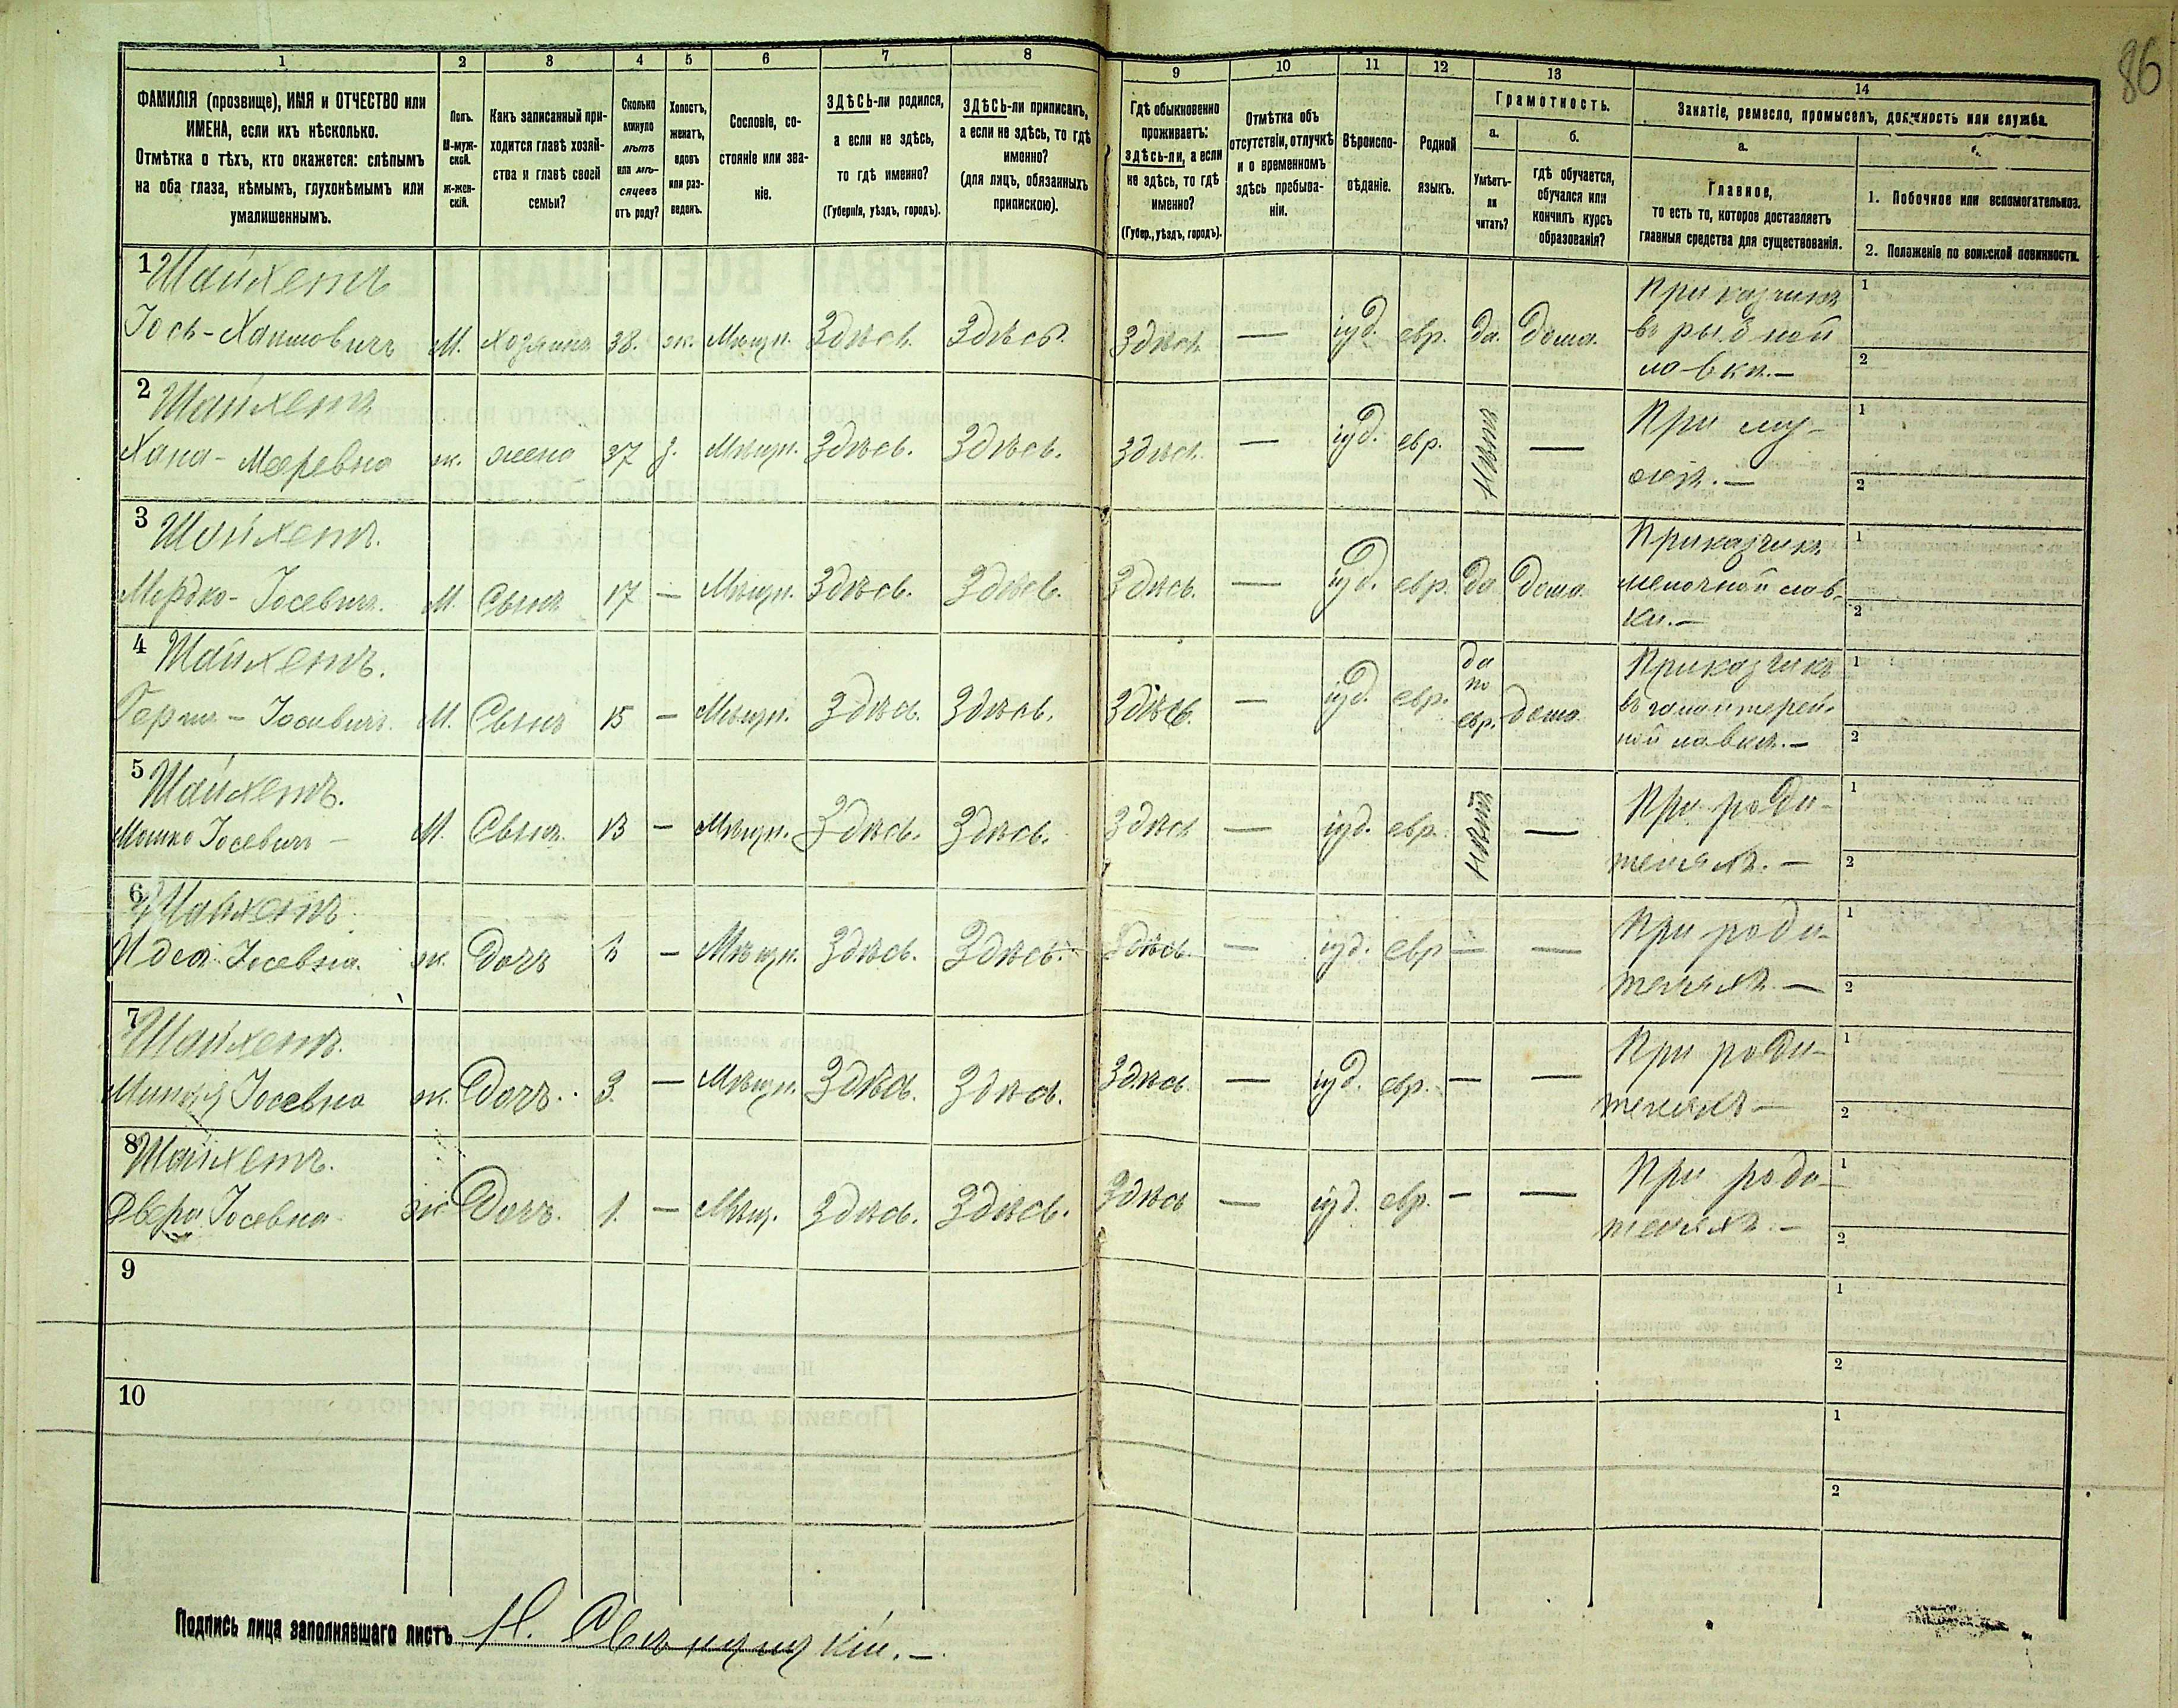 86
1 2 3 4 5 6 7 8 9 10 11 12 13 14
ФАМИЛІЯ (прозвище), ИМЯ и ОТЧЕСТВО или
ИМЕНА, если ихъ нѣсколько.
Отмѣтка о тѣхъ, кто окажется: слѣпымъ
на оба глаза, нѣмымъ, глухонѣмымъ или
умалишеннымъ.
Полъ.
М-муж-
ской.
ж-жен-
скій.
Какъ записанный при-
ходится главѣ хозяй-
ства и главѣ своей
семьи?
Сколько
минуло
лѣтъ
или мѣ-
сяцевъ
отъ роду?
Холостъ,
женатъ,
вдовъ
или раз-
веденъ.
Сословіе, со-
стояніе или зва-
ніе.
ЗДѢСЬ-ли родился,
а если не здѣсь,
то гдѣ именно?
(Губернія, уѣздъ, городъ).
ЗДѢСЬ-ли приписанъ,
а если не здѣсь, то гдѣ
именно?
(для лицъ, обязанныхъ
припискою).
Гдѣ обыкновенно
проживаетъ:
здѣсь-ли, а если
не здѣсь, то гдѣ
именно?
(Губер., уѣздъ, городъ).
Отмѣтка объ
отсутствіи, отлучкѣ
и о временномъ
здѣсь пребыва-
ніи.
Вѣроиспо-
вѣданіе.
Родной
языкъ.
Грамотность.
а.
Умѣетъ-
ли
читать?
б.
гдѣ обучается,
обучался или
кончилъ курсъ
образованія?
Занятіе, ремесло, промыселъ, должность или служба.
а.
Главное,
то есть то, которое доставляетъ
главныя средства для существованія.
1. Побочное или вспомогательное.
2. Положеніе по воинской повинности.
1 Шайхетъ
Іось-Хаимовичъ М. Хозяинъ 38. ж. Мѣщн. Здѣсь. Здѣсь. Здѣсь — іуд. евр. да. дома. Приказчикъ
въ рыбной
лавкѣ.—
1
2
2 Шайхетъ
Хана-Мееревна ж. жена 37 з. Мѣщн. Здѣсь. Здѣсь. Здѣсь. — іуд. евр. нѣтъ — При му-
жѣ.—
1
2
3 Шайхетъ.
Мордко-Іосевичъ. М. Сынъ 17 — Мѣщн. Здѣсь. Здѣсь. Здѣсь. — іуд. евр. да дома. Приказчикъ
мелочной лав-
ки.—
1
2
4 Шайхетъ.
Герш-Іосевичъ. М. Сынъ 15 — Мѣщн. Здѣсь. Здѣсь. Здѣсь. — іуд. евр. да по евр. дома Приказчикъ
въ галантерей-
ной лавкѣ.—
1
2
5 Шайхетъ.
Мошко Іосевичъ— М. Сынъ. 13 — Мѣщн. Здѣсь. Здѣсь. Здѣсь — іуд. евр. нѣтъ — При роди-
теляхъ.—
1
2
6 Шайхетъ
Идея Іосевна. ж. Дочь — Мѣщн. Здѣсь. Здѣсь. Здѣсь. — іуд. евр — — При роди-
теляхъ.—
1
2
7 Шайхетъ.
Іосевна ж. Дочь. 3. — Мѣщн. Здѣсь. Здѣсь. Здѣсь. — іуд. евр. — — При роди-
теляхъ—
1
2
8 Шайхетъ.
Двера Іосевна ж Дочь. 1. — Мѣщ. Здѣсь. Здѣсь. Здѣсь — іуд. евр. — — При роди-
теляхъ.—
1
2
9
1
2
10
1
2
Подпись лица заполнявшаго листъ